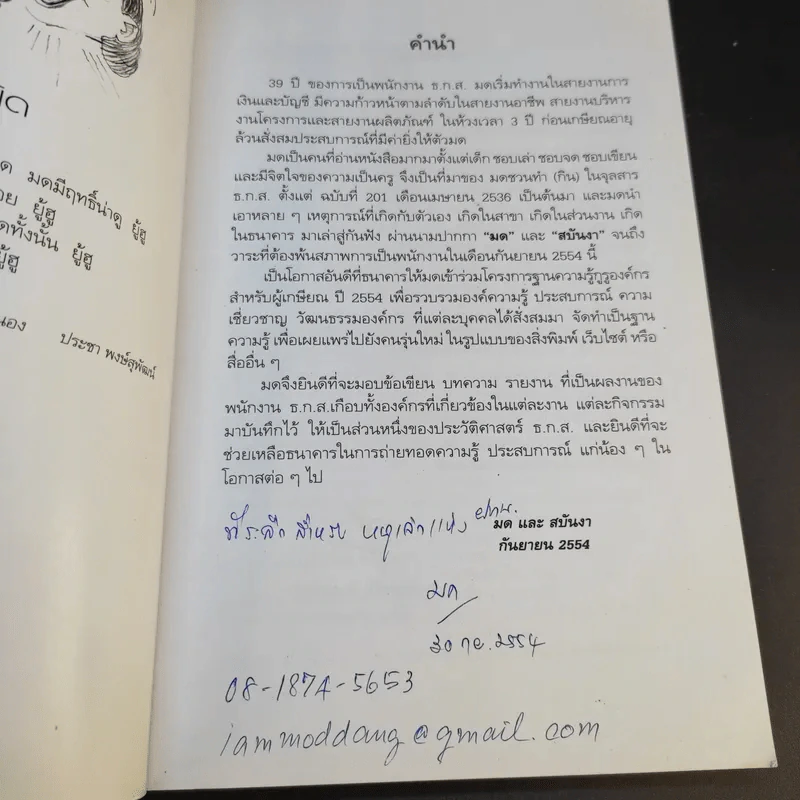 ด มดมีฤทธิ์น่าดู ยู้ฮู
ยู้ฮู
ดทั้งนั้น ยู้ฮู
ยู้ฮู
นอง
ประชา พงษ์สุพัฒน์
คำนำ
39 ปี ของการเป็นพนักงาน ธ.ก.ส. มดเริ่มทำงานในสายงานการ
เงินและบัญชี มีความก้าวหน้าตามลำดับในสายงานอาชีพ สายงานบริหาร
งานโครงการและสายงานผลิตภัณฑ์ ในห้วงเวลา 3 ปี ก่อนเกษียณอายุ
ล้วนสั่งสมประสบการณ์ที่มีค่ายิ่งให้ตัวมด
มดเป็นคนที่อ่านหนังสือมากมาตั้งแต่เด็ก ชอบเล่า ชอบจด ชอบเขียน
และมีจิตใจของความเป็นครู จึงเป็นที่มาของ มดชวนทำ (กิน) ในจุลสาร
ธ.ก.ส. ตั้งแต่ ฉบับที่ 201 เดือนเมษายน 2536 เป็นต้นมา และมดนำ
เอาหลาย ๆ เหตุการณ์ที่เกิดกับตัวเอง เกิดในสาขา เกิดในส่วนงาน เกิด
ในธนาคาร มาเล่าสู่กันฟัง ผ่านนามปากกา “มด” และ “สบันงา” จนถึง
วาระที่ต้องพ้นสภาพการเป็นพนักงานในเดือนกันยายน 2554 นี้
เป็นโอกาสอันดีที่ธนาคารให้มดเข้าร่วมโครงการฐานความรู้กูรูองค์กร
สำหรับผู้เกษียณ ปี 2554 เพื่อรวบรวมองค์ความรู้ ประสบการณ์ ความ
เชี่ยวชาญ วัฒนธรรมองค์กร ที่แต่ละบุคคลได้สั่งสมมา จัดทำเป็นฐาน
ความรู้ เพื่อเผยแพร่ไปยังคนรุ่นใหม่ ในรูปแบบของสิ่งพิมพ์ เว็บไซต์ หรือ
สื่ออื่น ๆ
มดจึงยินดีที่จะมอบข้อเขียน บทความ รายงาน ที่เป็นผลงานของ
พนักงาน ธ.ก.ส.เกือบทั้งองค์กรที่เกี่ยวข้องในแต่ละงาน แต่ละกิจกรรม
มาบันทึกไว้ ให้เป็นส่วนหนึ่งของประวัติศาสตร์ ธ.ก.ส. และยินดีที่จะ
ช่วยเหลือธนาคารในการถ่ายทอดความรู้ ประสบการณ์ แก่น้อง ๆ ใน
โอกาสต่อ ๆ ไป
ที่ระลึก สำหรับ
มด และ สบันงา
กันยายน 2554
มด
30 กย. 2554
08-1874-5653
iammoddang@gmail.com